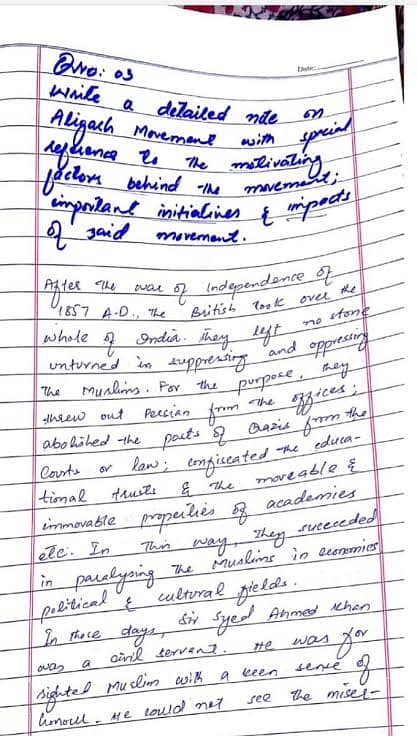 Date:
Q No: 03
Write a detailed note on
Aligarh Movement with special
reference to the motivating
factors behind the movement;
important initiatives & impacts
of said movement.
After the war of Independence of
1857 A.D., The British took over the
whole of India. They left no stone
unturned in suppressing and oppressing
The Muslims. For the purpose, they
threw out Persian from the offices;
abolished the posts of Qazis from the
Courts or law; confiscated the educa-
tional trusts & the moveable &
immovable properties of academies
etc. In This way, They succeeded
in paralysing The Muslims in economics
political & cultural fields.
In those days, Sir Syed Ahmed Khan
was a civil servant. He was far
sighted Muslim with a keen sense of
honour. He could not see the miser-